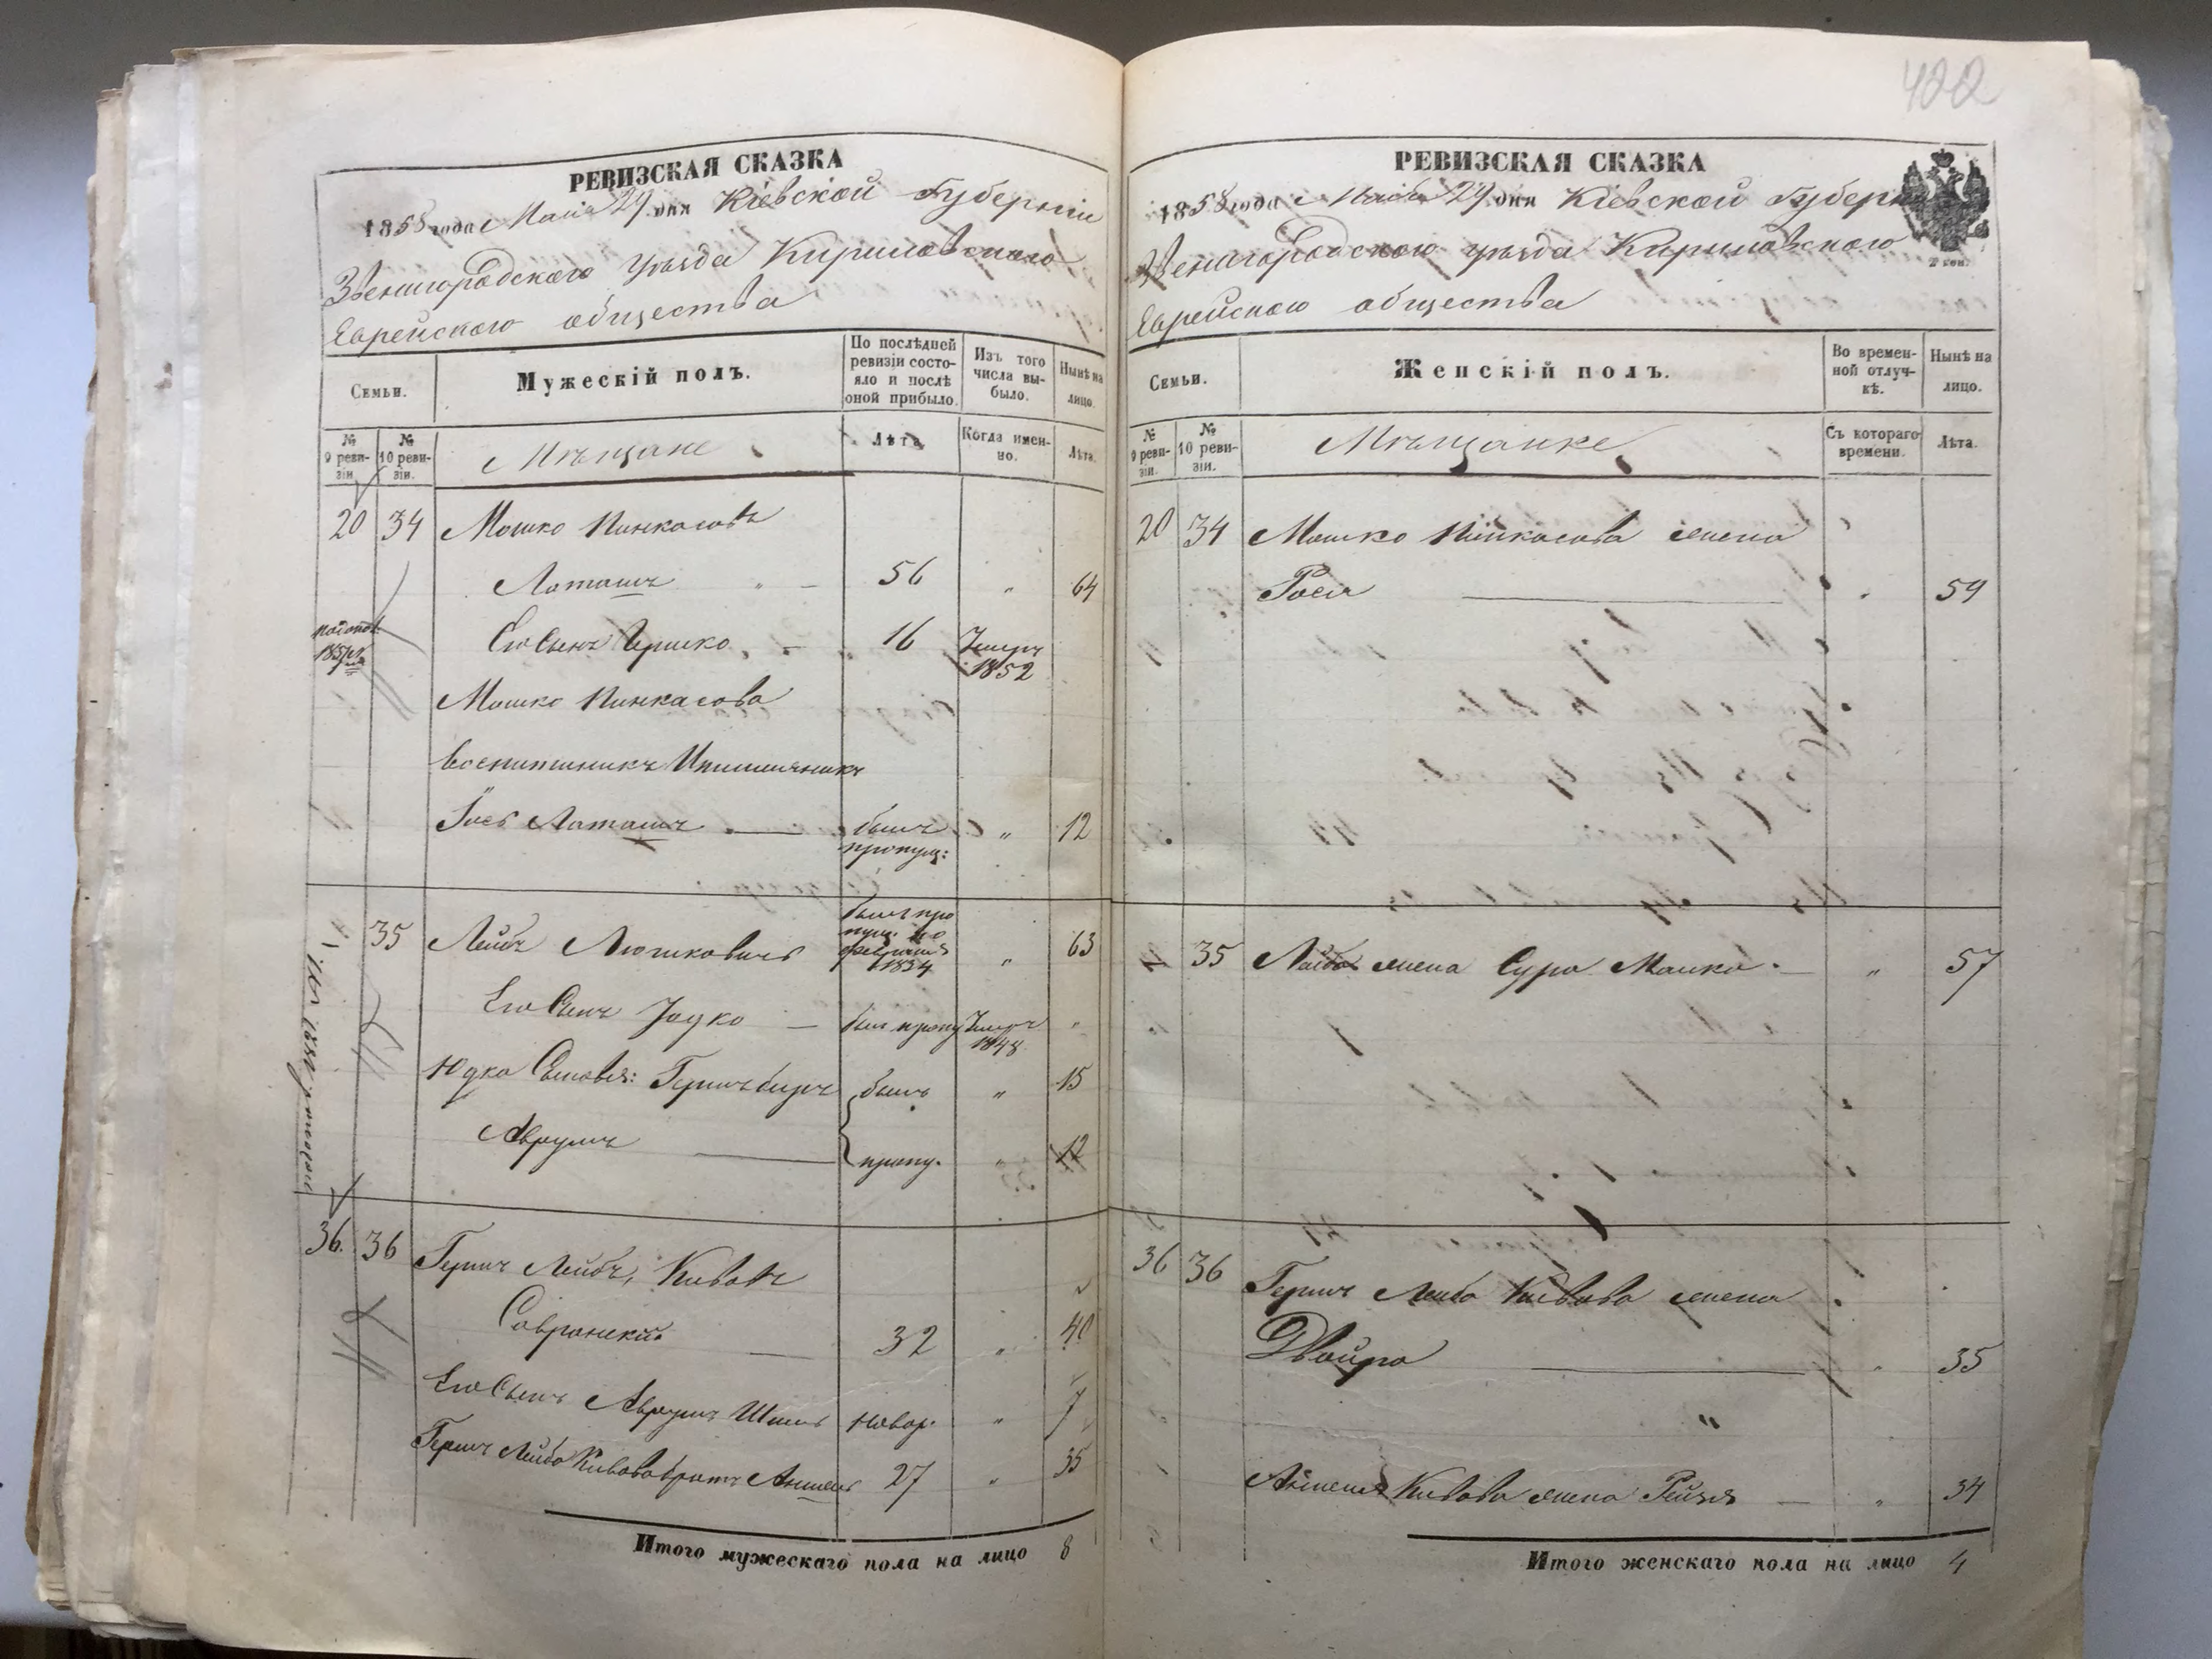 422
РЕВИЗСКАЯ СКАЗКА
1858 года Маія 29 дня Кіевской Губерніи
Звенигородскаго уѣзда Кириловскаго
Еврейскаго общества
Семьи.
Мужескій полъ.
По послѣдней ревизіи состояло и послѣ оной прибыло.
Изъ того числа выбыло.
Нынѣ на лицо.
№ 9 ревизіи.
№ 10 ревизіи.
Мѣщане
Лѣта.
Когда именно.
Лѣта.
20 34 Мошко Пинкасовъ
56 " 64
Его Сынъ Гершко 16 Умеръ 1852
Мошко Пинкасова
Іось
былъ пропущ: " 12
35 Лейбъ
былъ пропущ. по 1834 " 63
Его Сынъ Юдко — был пропу Умеръ 1848 "
Юдка Сыновья: Гершъ Беръ былъ " 15
Аврумъ пропу. " 12
36. 36 Гершъ Лейбъ Кивовъ
Савранскій 32 " 40
Его Сынъ Аврумъ новор. " 7
Гершъ Лейба Кивова братъ Аншель 27 " 35
Итого мужескаго пола на лицо 8
РЕВИЗСКАЯ СКАЗКА
1858 года Маія 29 дня Кіевской Губерніи
Звенигородскаго уѣзда Кириловскаго
2 коп.
Еврейскаго общества
Семьи.
Женскій полъ.
Во временной отлучкѣ.
Нынѣ на лицо.
№ 9 ревизіи.
№ 10 ревизіи.
Мѣщанке
Съ котораго времени.
Лѣта.
20 34 Мошко Пинкасова жена
Рося " 59
35 Лейба жена Сура Малка — " 57
36 36 Гершъ Лейба Кивова жена
Двойра " 35
"
Аншеля Кивова жена Рейзя — " 34
Итого женскаго пола на лицо 4